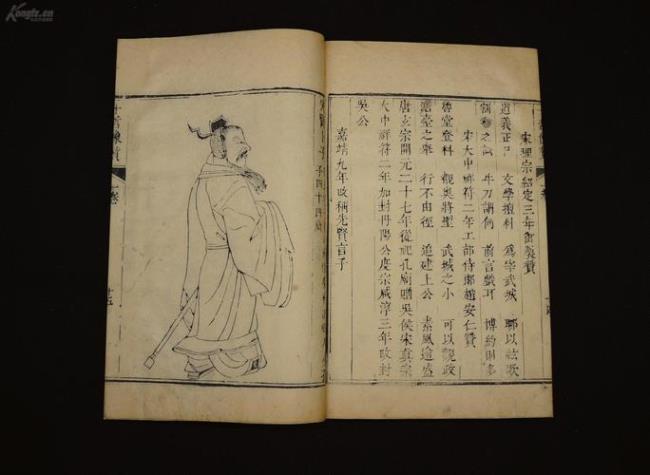 Kongfz.cn
宋理宗紹定三年御製贊
道義正己 文學擅科 為宰武城 聊以絃歌
割雞之試 牛刀謂何 前言戲耳 博約則多
宋大中祥符二年工部侍郎趙安仁贊
魯堂登科 觀奧將聖 武城之小 可以觀政
澹臺之舉 行不由徑 追建上公 素風逾盛
唐玄宗開元二十七年從祀孔廟贈吳侯宋真宗
大中祥符二年加封丹陽公度宗咸淳三年改封
吳公
嘉靖九年改稱先賢言子